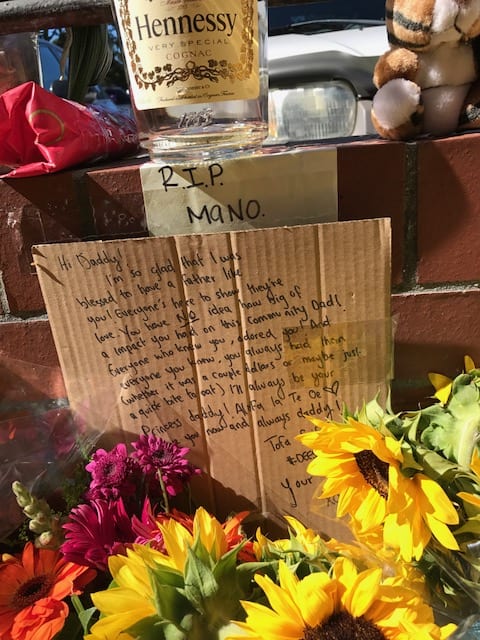 Hennessy
VERY SPECIAL
COGNAC
R.I.P.
MANO.
Hi Daddy!
I'm so glad that I was
blessed to have a father like
you! Everyone's here to show they're
love. You have NO idea how big of
a impact you had on this community Dad!
Everyone who knew you, adored you! And
everyone you knew, you always had them
(whether it was a couple dollars or maybe just
a quick bite to eat) I'll always be your
Princess daddy! Alofa Ia Te Oe
you now and always daddy!
Tofa
your